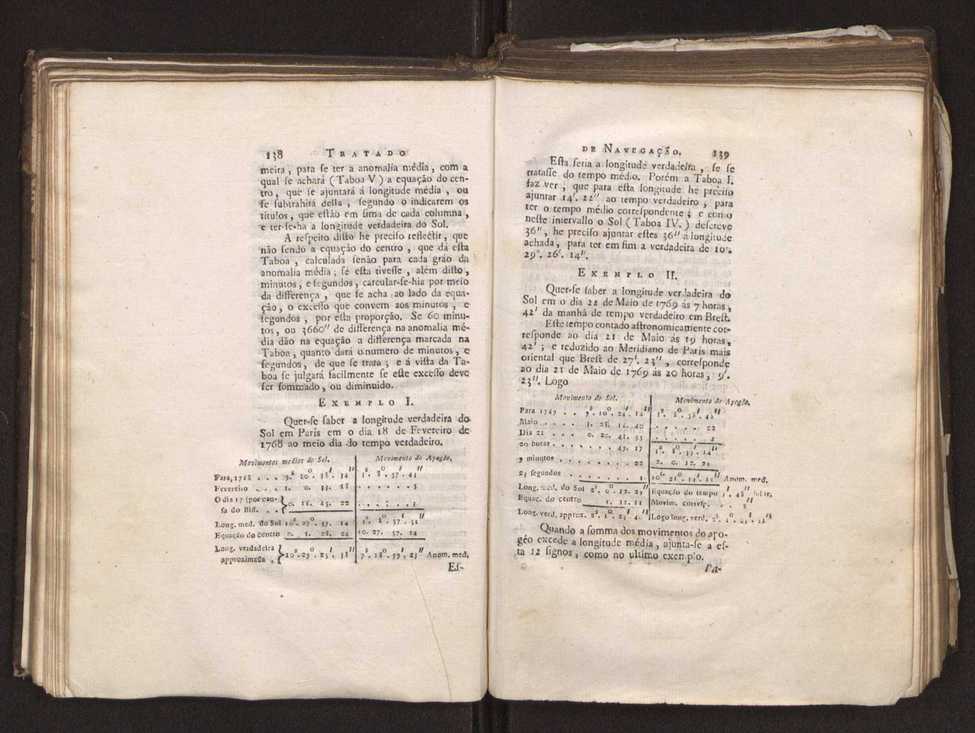 138 TRATADO
meira, para se ter a anomalia média, com a
qual se achará (Taboa V) a equação do cen-
tro, que se ajuntará á longitude média, ou
se subtrahirá della, segundo o indicarem os
titulos, que estão em sima de cada columna,
e ter-se-ha a longitude verdadeira do Sol.
A respeito disto he preciso reflectir, que
não sendo a equação do centro, que dá esta
Taboa, calculada senão para cada gráo da
anomalia média; se esta tivesse, além disso,
minutos, e segundos, calcular-se-hia por meio
da differença, que se acha ao lado da equa-
ção, o excesso que convem aos minutos, e
segundos, por esta proporção. Se 60 minu-
tos, ou 3660'' de differença na anomalia mé-
dia dão na equação a differença marcada na
Taboa, quanto dará o numero de minutos, e
segundos, de que se trata; e á vista da Ta-
boa se julgará facilmente se este excesso deve
ser sommado, ou diminuido.
EXEMPLO I.
Quer-se saber a longitude verdadeira do
Sol em Paris em o dia 18 de Fevereiro de
1768 ao meio dia do tempo verdadeiro.
Movimentos medios do Sol. Movimento do Apogêo.
Para, 1768 . . . 9. 10. 18. 34 3. 8. 57. 41
Fevereiro . . . 1. 0. 33. 18 . . . . . . 5
O dia 17 (por cau-
sa do Bis. . . 0. 16. 45. 22 . . . . . .
Long. med. do Sol 10. 27. 37. 14 3. 8. 57. 51
Equação do centro 10. 27. 37. 14
Long. verdadeira
approximada 10. 29. 25. 38 7. 18. 39. 23 Anom. med.
Es-
DE NAVEGAÇÃO. 139
Esta seria a longitude verdadeira, se se
tratasse do tempo médio. Porém a Taboa I.
faz ver, que para esta longitude he preciso
ajuntar 14'. 22'' ao tempo verdadeiro, para
ter o tempo médio correspondente; e como
neste intervallo o Sol (Taboa IV.) descreve
36'', he preciso ajuntar estes 36'' á longitude
achada, para ter em fim a verdadeira de 10s.
29°. 26'. 14''.
EXEMPLO II.
Quer-se saber a longitude verdadeira do
Sol em o dia 22 de Maio de 1769 ás 7 horas,
42' da manhã de tempo verdadeiro em Brest.
Este tempo contado astronomicamente cor-
responde ao dia 21 de Maio ás 19 horas,
42'; e reduzido ao Meridiano de Paris mais
oriental que Brest de 27'. 23'', corresponde
ao dia 21 de Maio de 1769 ás 20 horas, 9'.
23''. Logo
Movimento do Sol. Movimento do Apogêo.
Para 1769 . . . 9. 10. 24. 12
Maio . . . 3. 28. 16. 40 . . . . . . 22
Dia 21 . . . 0. 20. 41. 55 . . . . . . 3
20 horas . . . 49. 17
9 minutos . . . 22
23 segundos . . . 1 Anom. med.
Long. med. do Sol Equação do tempo
Equaç. do centro Movim. corresp.
Long. verd. approx. Logo long. verd.
Quando a somma dos movimentos do apo-
géo excede a longitude média, ajunta-se a es-
ta 12 signos, como no ultimo exemplo.
Pa-